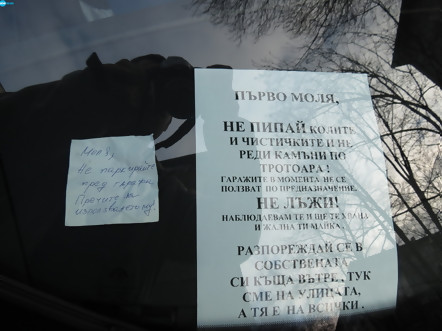 Моля,
Не паркирайте
пред гаража
ПЪРВО МОЛЯ,
НЕ ПИПАЙ КОЛИТЕ
И ЧИСТАЧКИТЕ И НЕ
РЕДИ КАМЪНИ ПО
ТРОТОАРА !
ГАРАЖИТЕ В МОМЕНТА НЕ СЕ
ПОЛЗВАТ ПО ПРЕДНАЗНАЧЕНИЕ.
НЕ ЛЪЖИ!
НАБЛЮДАВАМ ТЕ И ЩЕ ТЕ ХВАНА
И ЖАЛНА ТИ МАЙКА.
РАЗПОРЕЖДАЙ СЕ В
СОБСТВЕНАТА
СИ КЪЩА ВЪТРЕ, ТУК
СМЕ НА УЛИЦАТА,
А ТЯ Е НА ВСИЧКИ .